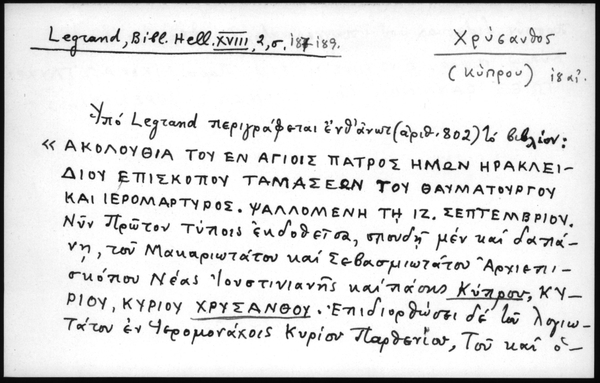 Legrand, Bill. Hell. XVIII, 2, σ. 187 189.
Χρύσανθος
(Κύπρου) 18 αἰ.
Ὑπό Legrand περιγράφεται ἐνθ' ἀνωτ. (ἀριθ. 802) τὸ βιβλίον:
« ΑΚΟΛΟΥΘΙΑ ΤΟΥ ΕΝ ΑΓΙΟΙΣ ΠΑΤΡΟΣ ΗΜΩΝ ΗΡΑΚΛΕΙ-
ΔΙΟΥ ΕΠΙΣΚΟΠΟΥ ΤΑΜΑΣΕΩΝ ΤΟΥ ΘΑΥΜΑΤΟΥΡΓΟΥ
ΚΑΙ ΙΕΡΟΜΑΡΤΥΡΟΣ. ΨΑΛΛΟΜΕΝΗ ΤΗ ΙΖ. ΣΕΠΤΕΜΒΡΙΟΥ.
Νῦν Πρῶτον τύποις ἐκδοθεῖσα, σπουδῇ μέν καί δαπά-
νῃ, τοῦ Μακαριωτάτου καί Σεβασμιωτάτου Ἀρχιεπι-
σκόπου Νέας Ἰουστινιανῆς καί πάσης Κύπρου, ΚΥ-
ΡΙΟΥ, ΚΥΡΙΟΥ ΧΡΥΣΑΝΘΟΥ. Ἐπιδιορθώσει δέ τοῦ λογιω-
τάτου ἐν Ἱερομονάχοις Κυρίου Παρθενίου, Τοῦ καί ὁ-